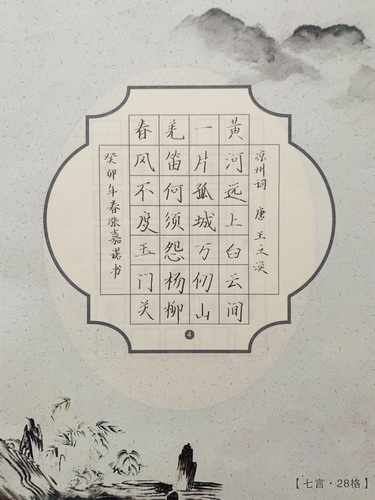 凉州词 唐 王之涣
黄河远上白云间
一片孤城万仞山
羌笛何须怨杨柳
春风不度玉门关
癸卯年春张嘉诺书
4
【七言·28格】